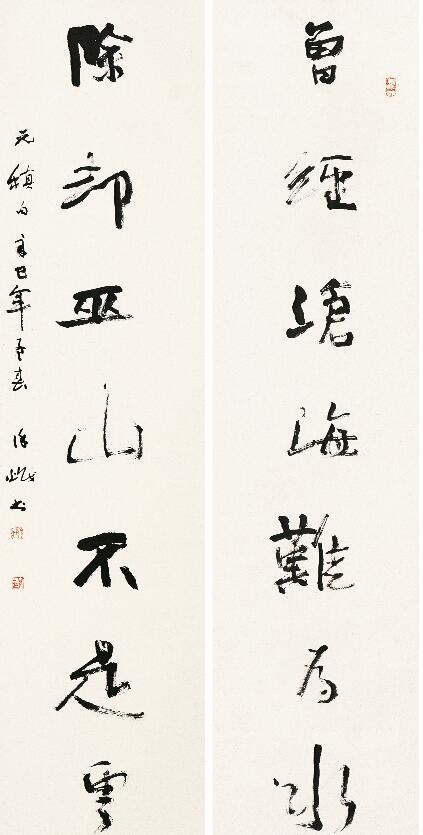 曾經滄海難為水
除却巫山不是雲
元稹句辛巳年孟春